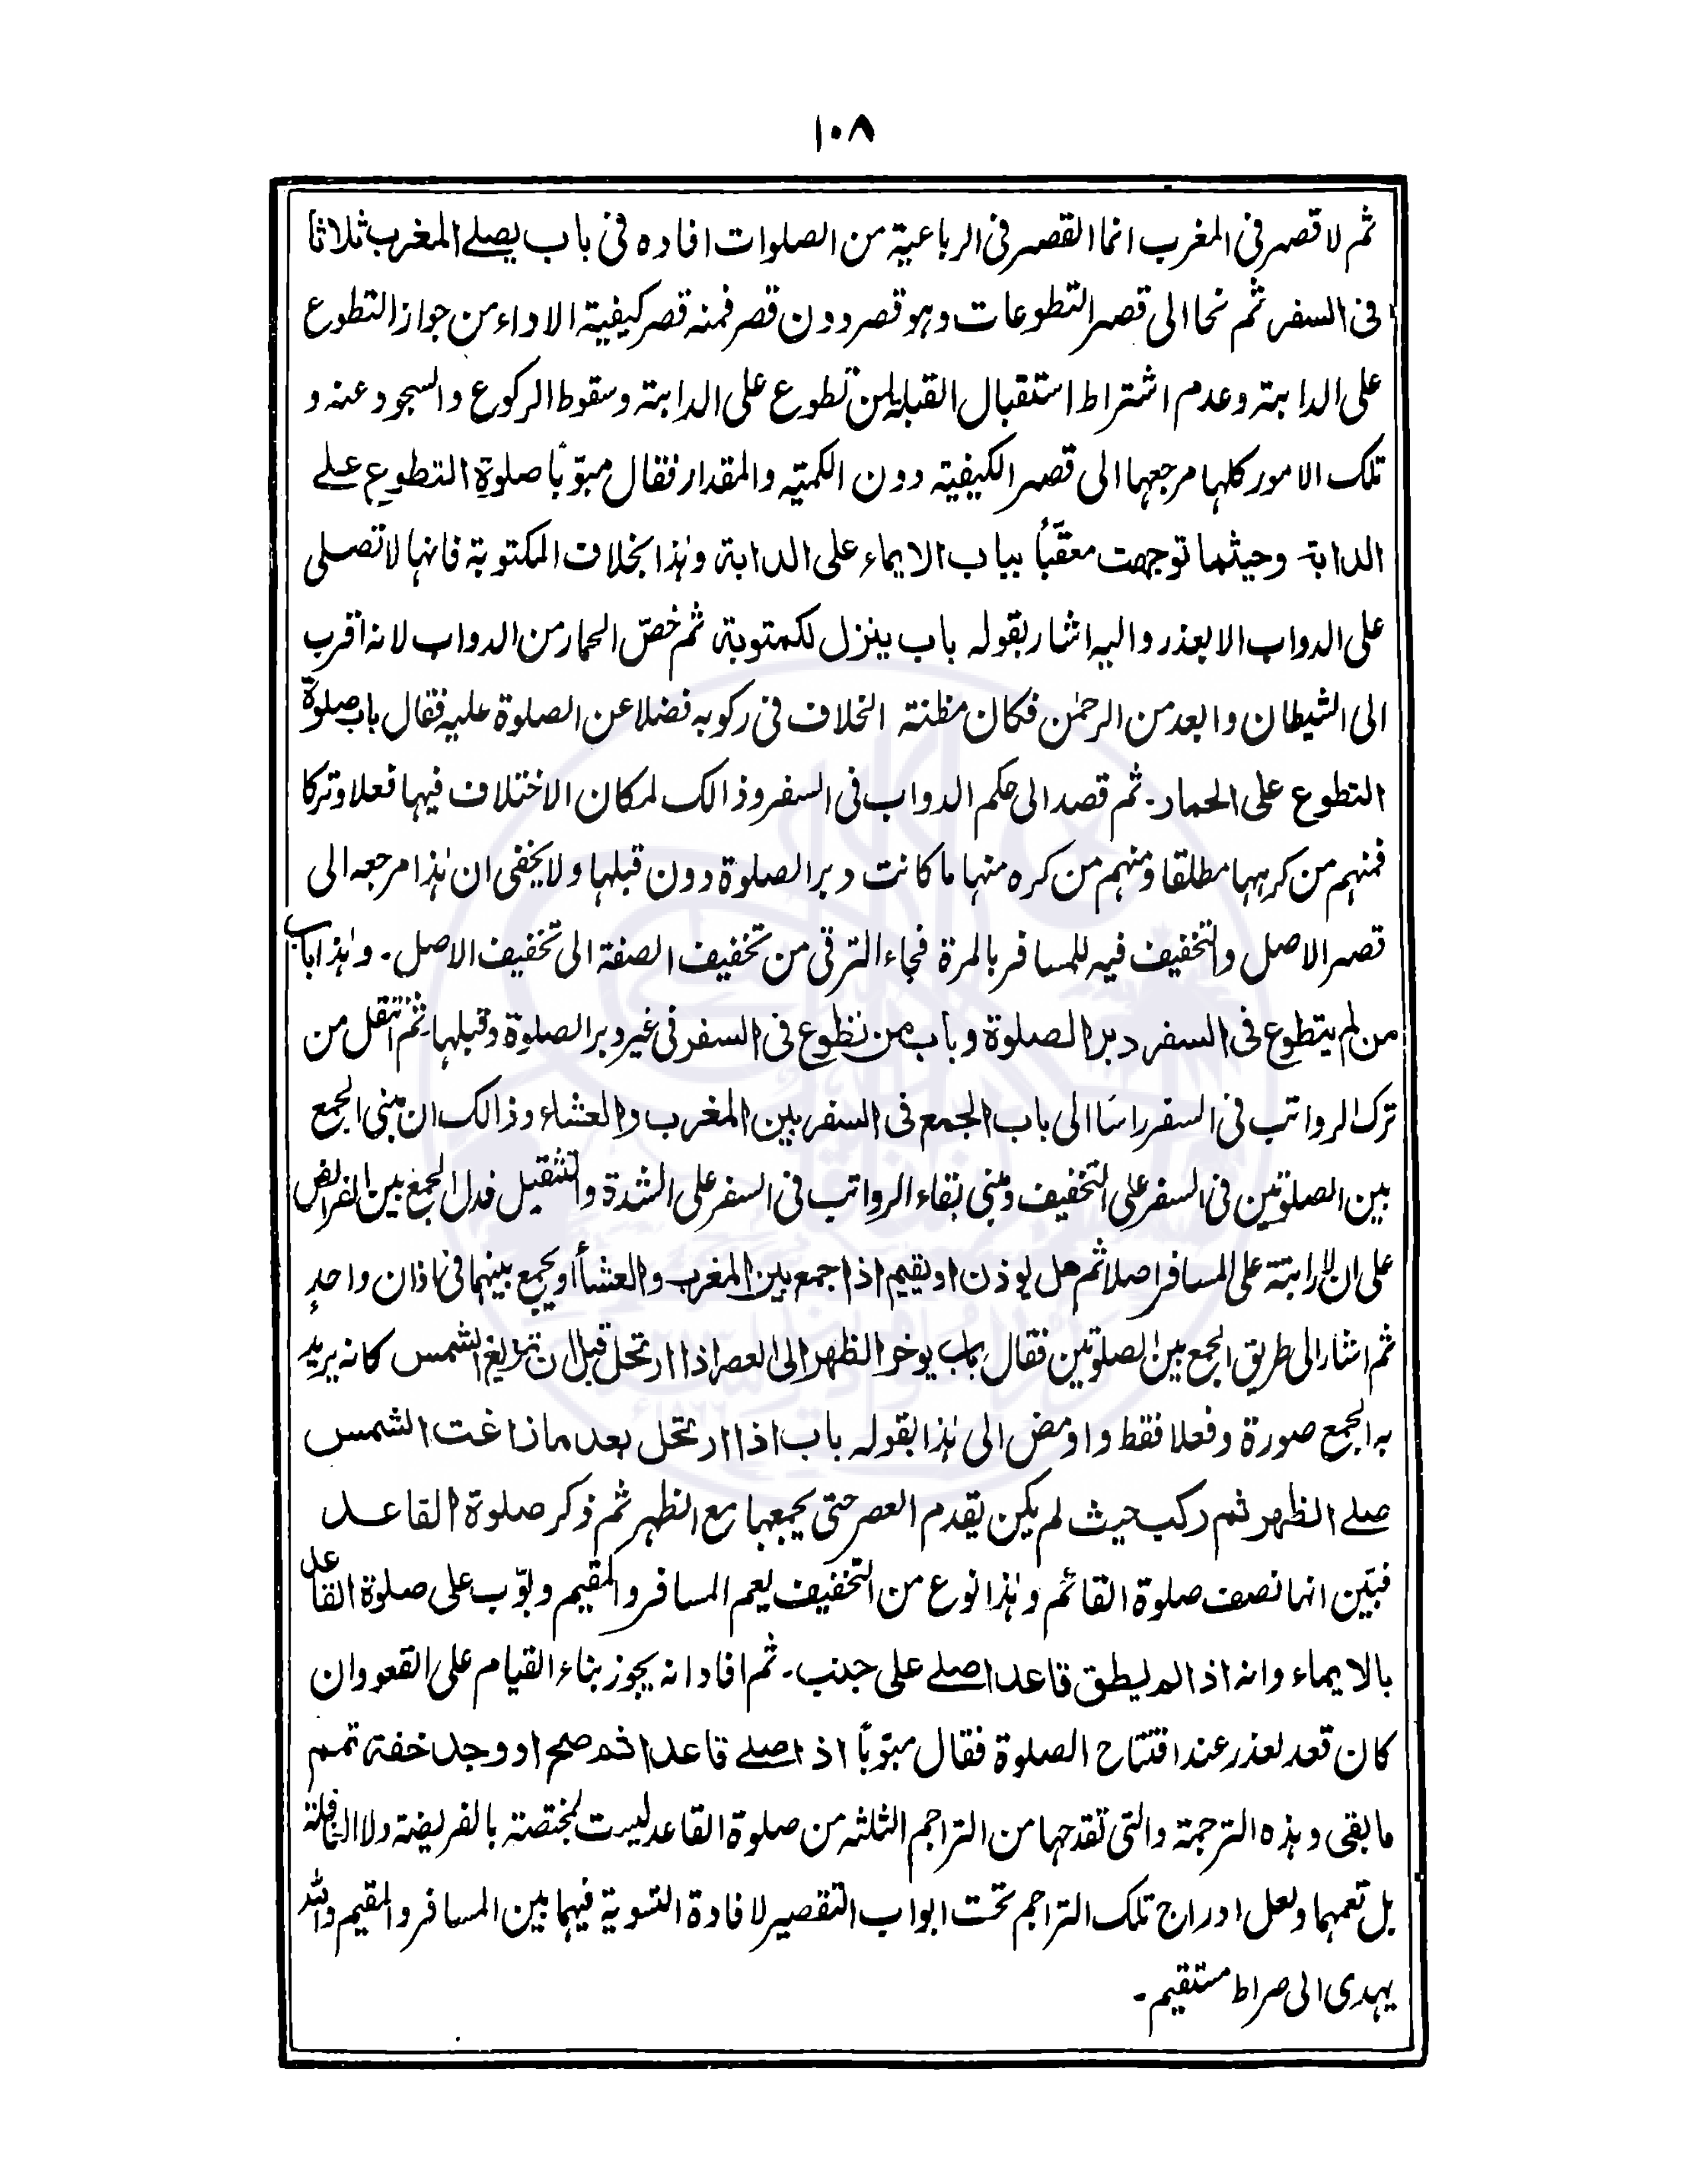 ١٠٨
ثم لا قصر فى المغرب انما القصر فى الرباعية من الصلوات افاده فى باب يصلے المغرب ثلاثا
فى السفر ثم نحا الى قصر التطوعات وهو قصر دون قصر فمنه قصر كيفية الاداء من جواز التطوع
على الدابة وعدم اشتراط استقبال القبلة لمن تطوع على الدابة وسقوط الركوع والسجود عنه و
تلك الامور كلها مرجعها الى قصر الكيفية دون الكمّية والمقدار فقال مبوّبًا صلوة التطوع علے
الدابة وحيثما توجهت معقّبًا بباب الايماء على الدابة وهذا بخلاف المكتوبة فانها لا تصلى
على الدواب الا بعذر واليه اشار بقوله باب ينزل لكمتوبة ثم خصّ الحمار من الدواب لانه اقرب
الى الشيطان وابعد من الرحمٰن فكان مظنة الخلاف فى ركوبه فضلا عن الصلوة عليه فقال باب صلوة
التطوع على الحمار۔ ثم قصد الى حكم الدواب فى السفر وذالك لمكان الاختلاف فيها فعلا وتركا
فمنهم من كرهها مطلقا ومنهم من كره منها ما كانت دبر الصلوة دون قبلها ولا يخفى ان هٰذا مرجعه الى
قصر الاصل والتخفيف فيه للمسافر بالمرة فجاء الترقى من تخفيف الصفة الى تخفيف الاصل۔ وهٰذا باب
من لم يتطوع فى السفر دبر الصلوة وباب من تطوع فى السفر فى غير دبر الصلوة وقبلها۔ ثم انتقل من
ترك الرواتب فى السفر راسًا الى باب الجمع فى السفر بين المغرب والعشاء وذالك ان مبنى الجمع
بين الصلوتين فى السفر على التخفيف ومبنى بقاء الرواتب فى السفر على الشدة والتثقيل فدل الجمع بين الفرائض
على ان لا راتبة على المسافر اصلا ثم هل يوذن او يقيم اذا جمع بين المغرب والعشاء او يجمع بينهما فى اذان واحد
ثم اشار الى طريق الجمع بين الصلوتين فقال باب يوخر الظهر الى العصر اذا ارتحل قبل ان تزيغ الشمس كانه يريد
به الجمع صورة وفعلا فقط واومض الى هٰذا بقوله باب اذا ارتحل بعد ماذاغت الشمس
صلے الظهر ثم ركب حيث لم يكن يقدم العصر حتى يجمعها مع الظهر ثم ذكر صلوة القاعد
فبيّن انها نصف صلوة القائم وهٰذا نوع من التخفيف يعم المسافر والمقيم وبوّب على صلوة القاعد
بالايماء وانه اذا لم يطق قاعدا صلے على جنب۔ ثم افاد انه يجوز بناء القيام على القعود ان
كان قعد لعذر عند افتتاح الصلوة فقال مبوّبًا اذا صلے قاعدا ثم صح او وجد خفة تمم
ما بقى وهذه الترجمة والتى تقدمها من التراجم الثلثه من صلوة القاعد ليست بمختصة بالفريضة ولا النافلة
بل تعمهما ولعل ادراج تلك التراجم تحت ابواب التقصير لافادة التسوية فيهما بين المسافر والمقيم والله
يهدى الى صراط مستقيم۔